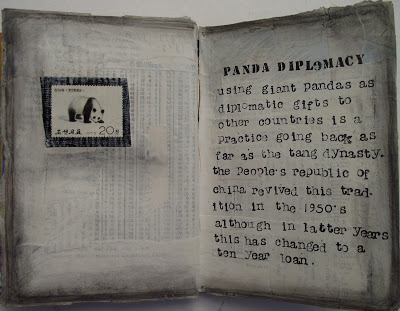 20전
PANDA DIPLOMACY
using giant pandas as
diplomatic gifts to
other countries is a
practice going back as
far as the tang dynasty.
the people's republic of
china revived this trad-
ition in the 1950's
although in latter years
this has changed to a
ten year loan.